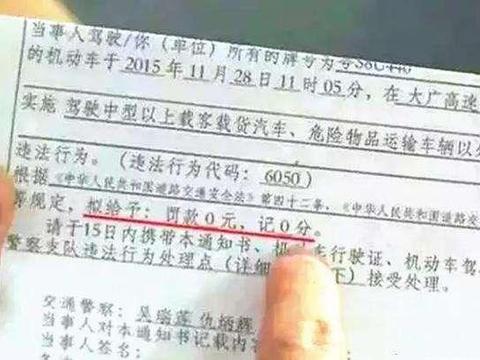 当事人驾驶/你（单位）所有的牌号为
的机动车于2015年11月28日11时05分，在大广高速
实施驾驶中型以上载客载货汽车、危险物品运输车辆以
违法行为。（违法行为代码：6050）
根据《中华人民共和国道路交通安全法》第四十二条、《中华人民共和国道路交
等规定，拟给予：罚款0元，记0分。
请于15日内携带本通知书、机 车行驶证、机动车驾
警察支队违法行为处理点（详细 下）接受处理。
交通警察：吴瑞莲 仇炳辉
当事人对本通知书记载内容
当事人签名：